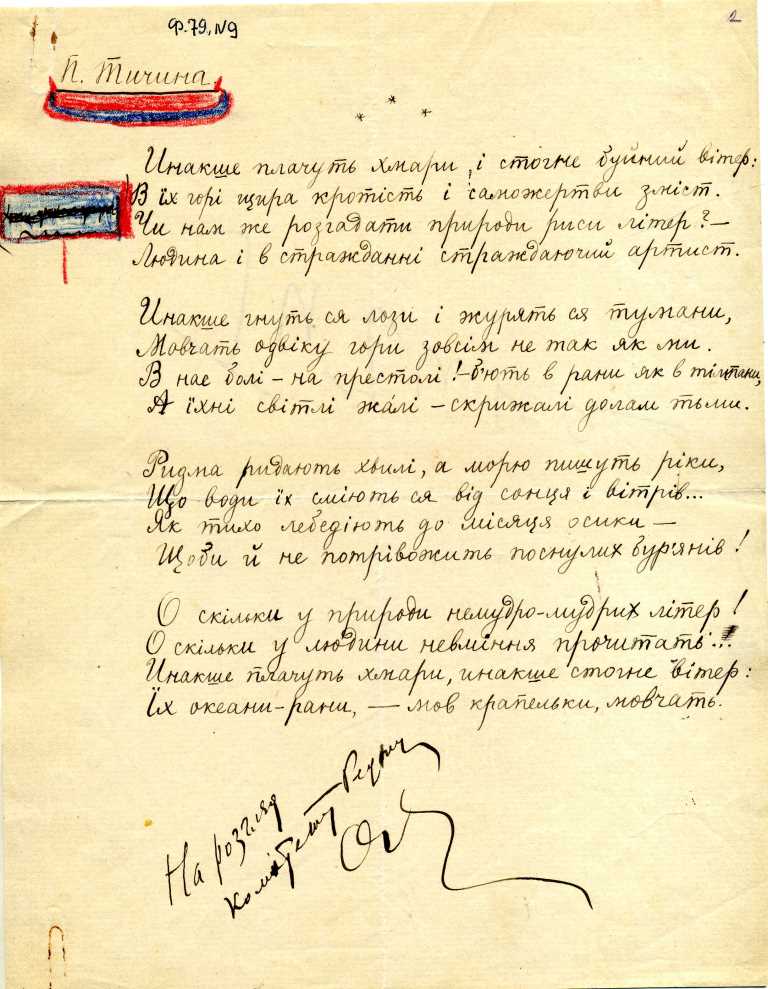 Ф.79, N9
2
П. Тичина.
* * *
Инакше плачуть хмари, і стогне буйний вітер:
В їх горі щира кротість і саможертви зміст.
Чи нам же розгадати природи риси літер? —
Людина і в стражданні страждаючий артист.
Инакше гнуть ся лози і журять ся тумани,
Мовчать одвіку гори зовсім не так як ми.
В нас болі – на престолі! – б'ють в рани як в тімпани,
А їхні світлі жалі – скрижалі долам тьми.
Ридма ридають хвилі, а морю пишуть ріки,
Що води їх сміють ся від сонця і вітрів...
Як тихо лебедіють до місяця осики —
Щоби й не потрівожить поснулих бур'янів!
О скільки у природи немудро-мудрих літер!
О скільки у людини невміння прочитать!..
Инакше плачуть хмари, инакше стогне вітер:
Їх океани-рани, — мов крапельки, мовчать.
На розгляд
комітету